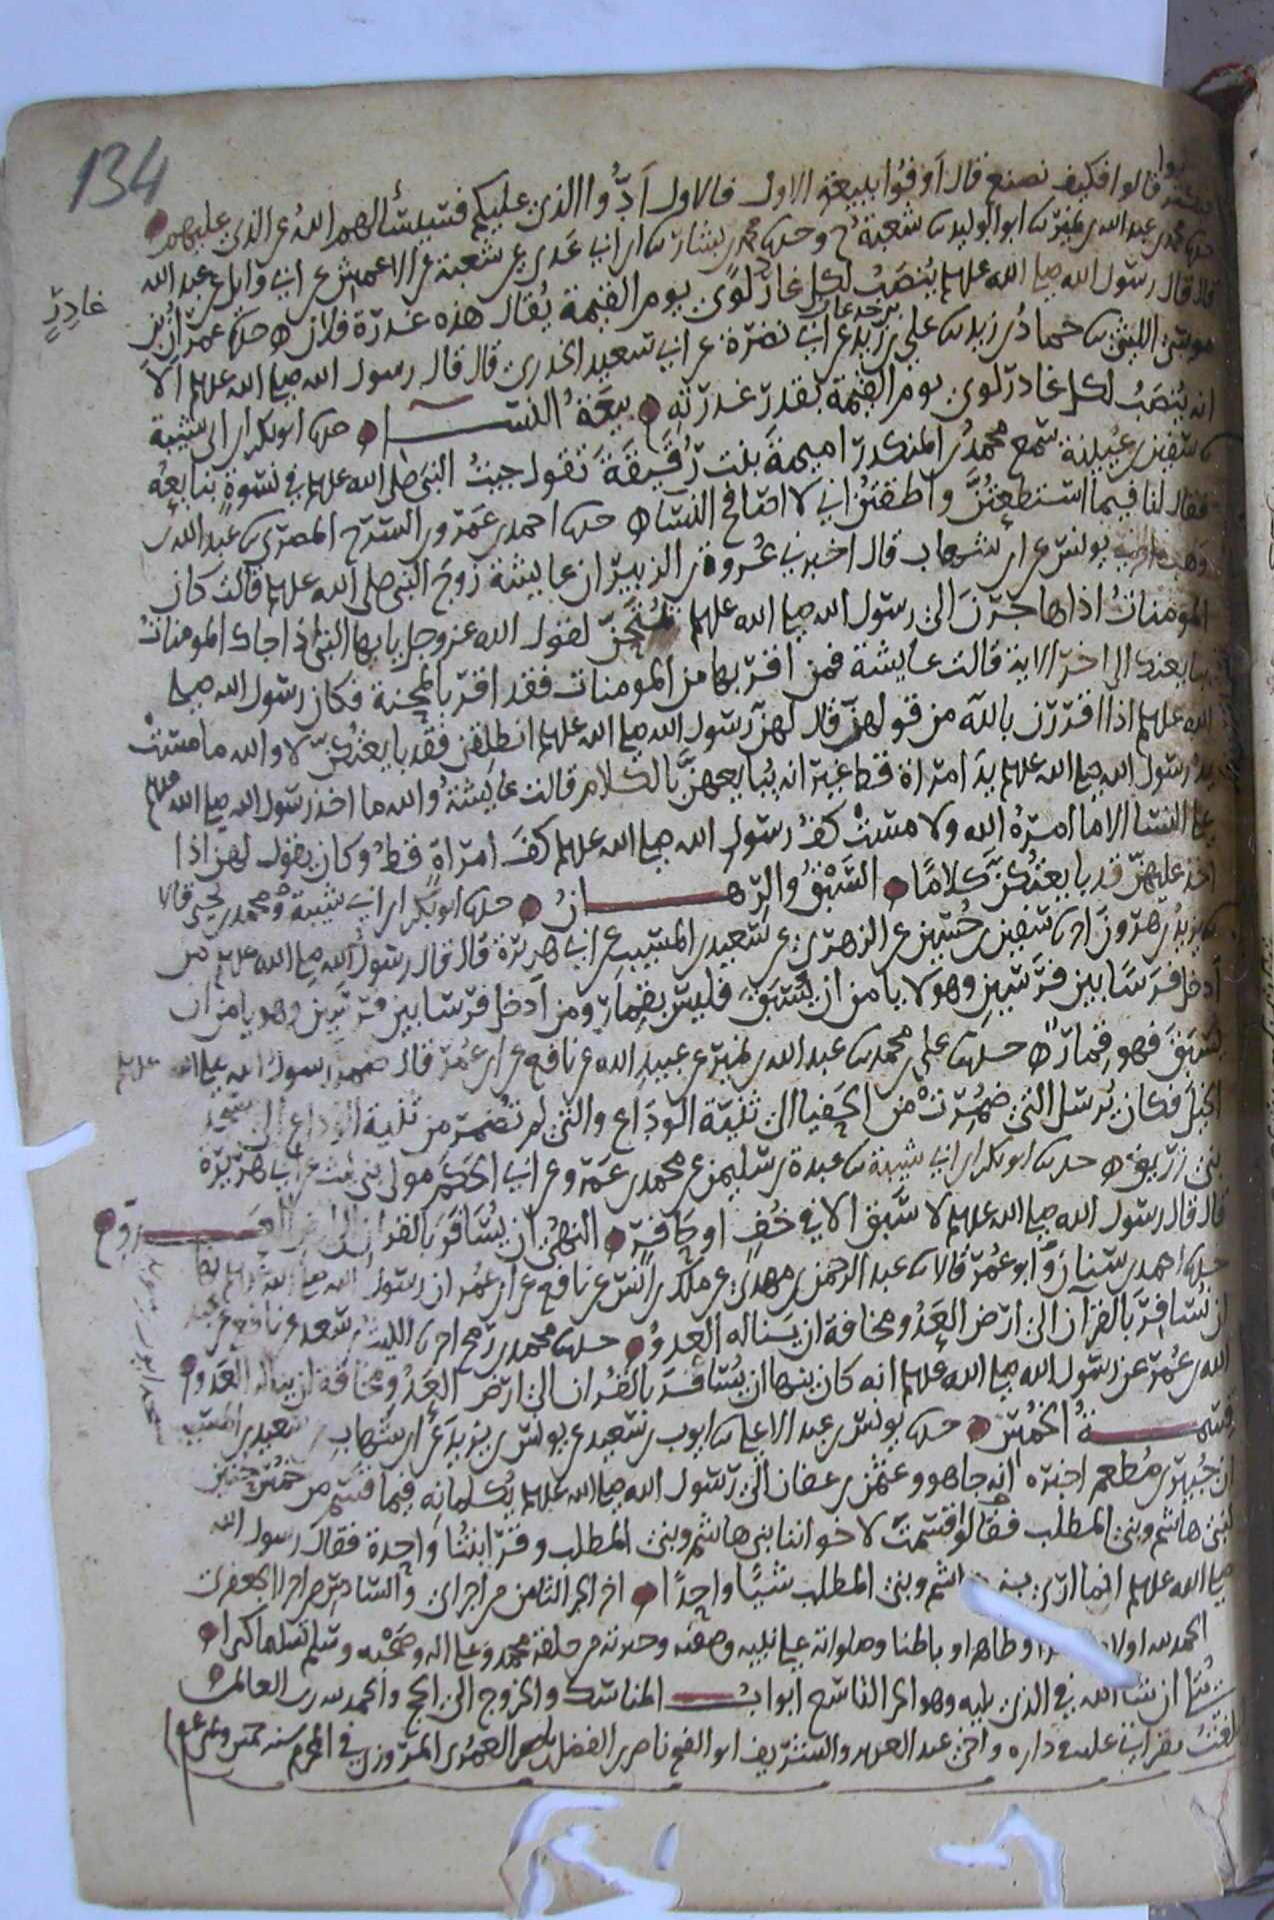 134
قالوا فكيف نصنع قال أوفوا ببيعة الاول فالاول أدوا الذي عليكم فسيسألهم الله عن الذي عليهم
حدثنا محمد بن عبد الله بن نمير ثنا ابو الوليد ثنا شعبة ح وحدثنا محمد بن بشار ثنا ابن ابي عدي عن شعبة عن الاعمش عن ابي وايل عن عبد الله
قال قال رسول الله صلى الله عليه وسلم ينصب لكل غادر لوى يوم القيمة يقال هذه غدرة فلان حدثنا عمران بن
غادر
موسى الليثي ثنا حماد بن زيد ثنا علي بن زيد عن ابي نضرة عن ابي سعيد الخدري قال قال رسول الله صلى الله عليه وسلم الا
انه ينصب لكل غادر لوى يوم القيمة بقدر غدرته بيعة النسا حدثنا ابو بكر بن ابي شيبة
ثنا سفين بن عيينة سمع محمد بن المنكدر اميمة بنت رقيقة تقول جيت النبي صلى الله عليه وسلم في نسوة نبايعه
فقال لنا فيما استطعتن واطقتن اني لا اصافح النسا حدثنا احمد بن عمرو بن السرح المصري ثنا عبد الله بن
وهب يونس عن ابن شهاب قال اخبرني عروة بن الزبير ان عايشة زوج النبي صلى الله عليه وسلم قالت كان
المومنات اذا هاجرن الى رسول الله صلى الله عليه وسلم يمتحن لقول الله عز وجل يايها النبي اذا جاك المومنات
يبايعنك الى اخر الاية قالت عايشة فمن اقر بها من المومنات فقد اقر بالمحنة فكان رسول الله صلى
الله عليه وسلم اذا اقررن بالله من قولهن قال لهن رسول الله صلى الله عليه وسلم انطلقن فقد بايعتكن لا والله ما مست
يد رسول الله صلى الله عليه وسلم يد امراة قط غير انه يبايعهن بالكلام قالت عايشة والله ما اخذ رسول الله صلى الله عليه وسلم
على النسا الا ما امره الله ولا مست كف رسول الله صلى الله عليه وسلم كف امراة قط وكان يقول لهن اذا
اخذ عليهن قد بايعتكن كلاما السبق والرهان حدثنا ابو بكر بن ابي شيبة ومحمد بن يحيى قالا
ثنا يزيد بن هرون انا سفين بن حسين عن الزهري عن سعيد بن المسيب عن ابي هريرة قال قال رسول الله صلى الله عليه وسلم من
أدخل فرسا بين فرسين وهو لا يامن ان يسبق فليس بقمار ومن أدخل فرسا بين فرسين وهو يامن ان
يسبق فهو قمار حدثنا علي بن محمد ثنا عبد الله بن نمير عن عبيد الله عن نافع عن ابن عمر قال ضمر رسول الله صلى الله عليه وسلم
الخيل فكان يرسل التي ضمرت من الحفيا الى ثنية الوداع والتي لم تضمر من ثنية الوداع الى مسجد
بني زريق حدثنا ابو بكر بن ابي شيبة ثنا عبدة بن سليمن عن محمد بن عمرو عن ابي الحكم مولى بني ليث عن ابي هريرة
قال قال رسول الله صلى الله عليه وسلم لا سبق الا في خف او حافر النهي ان يسافر بالقران الى ارض العدو
حدثنا احمد بن سنان وابو عمر قالا ثنا عبد الرحمن بن مهدي عن ملك بن انس عن نافع عن ابن عمر ان رسول الله صلى الله عليه وسلم نها
ان يسافر بالقران الى ارض العدو مخافة ان يناله العدو حدثنا محمد بن رمح انا الليث بن سعد عن نافع عن عبد
الله بن عمر عن رسول الله صلى الله عليه وسلم انه كان ينها ان يسافر بالقران الى ارض العدو مخافة ان يناله العدو
قسمة الخمس حدثنا يونس بن عبد الاعلى ثنا ايوب بن سعيد عن يونس بن يزيد عن ابن شهاب عن سعيد بن المسيب
ان جبير بن مطعم اخبره انه جا هو وعثمن بن عفان الى رسول الله صلى الله عليه وسلم يكلمانه فيما قسم من خمس حنين
لبني هاشم وبني المطلب فقالوا قسمت لاخواننا بني هاشم وبني المطلب وقرابتنا واحدة فقال رسول الله
صلى الله عليه وسلم انما ارى بني هاشم وبني المطلب شيا واحدا اخر الجز الثامن من اجزاي والسادس من اجزا الجعفري
الحمد لله اولا وظاهرا وباطنا وصلواته على نبيه وصفيه من خلقه محمد وعلى اله وصحبه وسلم تسليما كثيرا
يتلوه ان شا الله في الذي يليه وهو الجز التاسع ابواب المناسك والخروج الى الحج والحمد لله رب العالمين
بلغت بقراتي عليه في داره واخي عبد العزيز والشريف ابو الفتح ناصر بن الفضل العمري المروزي في المحرم سنة